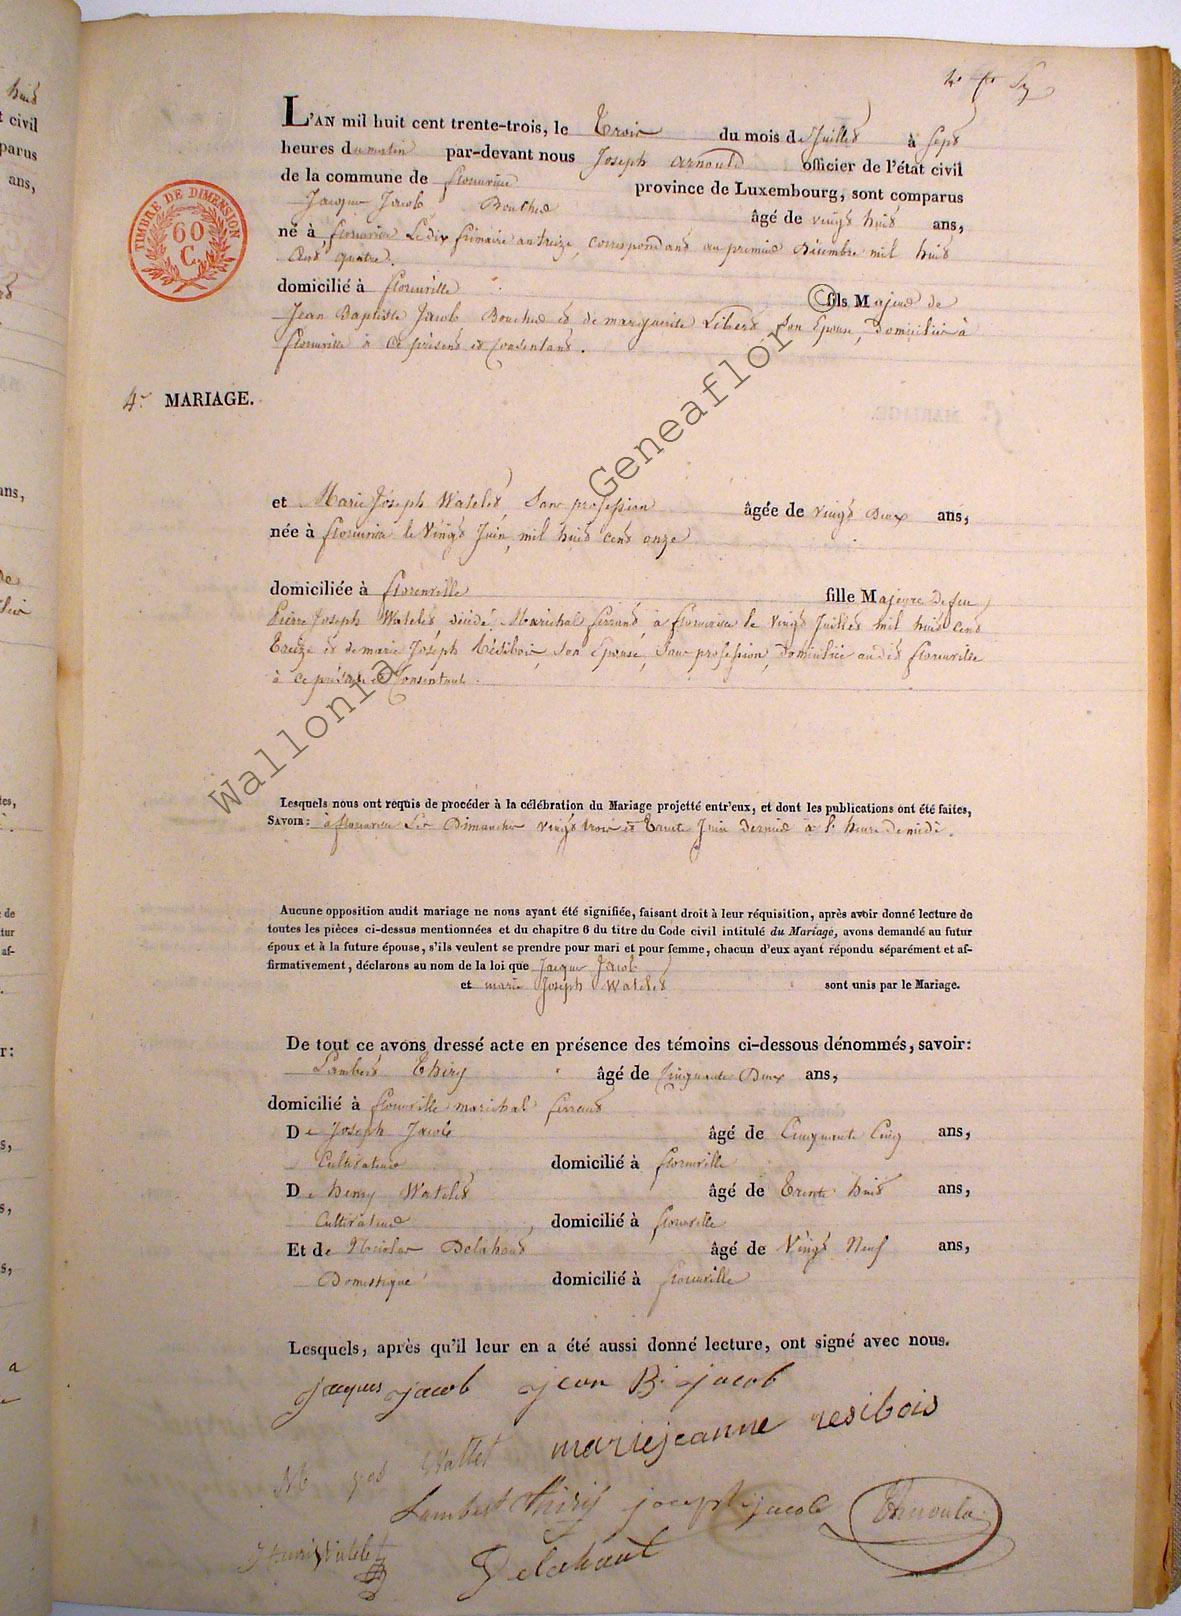 L'AN mil huit cent trente-trois, le Trois du mois de Juillet à Sept
heures du matin par-devant nous Joseph Arnould officier de l'état civil
de la commune de florenville province de Luxembourg, sont comparus
Jacque Jacob, Boucher âgé de vingt huit ans,
né à florenville Le dix frimaire an treize, correspondant au premier Décembre mil huit
Cent quatre.
domicilié à florenville fils Majeur de
Jean Baptiste Jacob Boucher et de marguerite Libert Son Epouse, Domiciliés à
florenville à ce présent et Consentant.
TIMBRE DE DIMENSION
60
C.
4e MARIAGE.
et Marie Joseph Watelet, Sans profession âgée de vingt Deux ans,
née à florenville le Vingt Juin, mil huit cent onze
domiciliée à florenville fille Majeure De feu
Pierre Joseph Watelet, décédé, Maréchal ferrant, à florenville le vingt Juillet mil huit cent
Treize et de marie Joseph Résibois, Son Epouse, Sans profession, Domiciliée audit florenville
à ce présente et Consentante.
Lesquels nous ont requis de procéder à la célébration du Mariage projetté entr'eux, et dont les publications ont été faites,
SAVOIR: à florenville Les Dimanches vingt trois et Trente Juin dernier à l'heure de midi.
Aucune opposition audit mariage ne nous ayant été signifiée, faisant droit à leur réquisition, après avoir donné lecture de
toutes les pièces ci-dessus mentionnées et du chapitre 6 du titre du Code civil intitulé du Mariage, avons demandé au futur
époux et à la future épouse, s'ils veulent se prendre pour mari et pour femme, chacun d'eux ayant répondu séparément et af-
firmativement, déclarons au nom de la loi que Jacque Jacob
et marie Joseph Watelet sont unis par le Mariage.
De tout ce, avons dressé acte en présence des témoins ci-dessous dénommés, savoir:
Lambert Thiry âgé de Cinquante Deux ans,
domicilié à florenville maréchal ferrant
De Joseph Jacob âgé de Cinquante Cinq ans,
Cultivateur domicilié à florenville
De henry Watelet âgé de Trente huit ans,
Cultivateur, domicilié à florenville
Et de Nicolas Delahaut âgé de Vingt Neuf ans,
Domestique domicilié à florenville
Lesquels, après qu'il leur en a été aussi donné lecture, ont signé avec nous.
jacques jacob jean B. jacob
Wattlet mariejeanne resibois
Lambert thiry joseph jacob Arnould
Henri Watelet
Delahaut
Wallonia Geneaflor ©